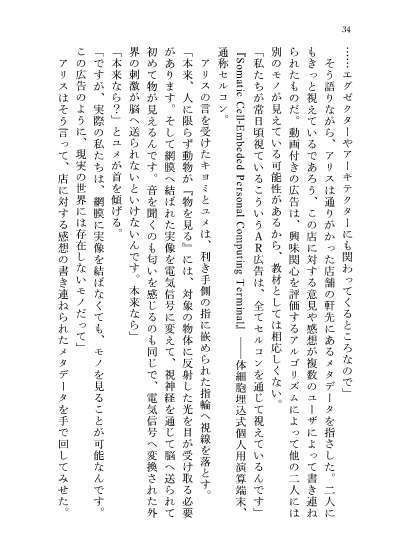 34
……エグゼクターやアーキテクターにも関わってくるところなので」
そう語りながら、アリスは通りがかった店舗の軒先にあるメタデータを指さした。二人に
もきっと視えているであろう、この店に対する意見や感想が複数のユーザによって書き連ね
られたものだ。動画付きの広告は、興味関心を評価するアルゴリズムによって他の二人には
別のモノが見えている可能性があるから、教材としては相応しくない。
「私たちが常日頃視ているこういうAR広告は、全てセルコンを通じて視えているんです」
『Somatic Cell-Embeded Personal Computing Terminal』――体細胞埋込式個人用演算端末、
通称セルコン。
アリスの言を受けたキヨミとユメは、利き手側の指に嵌められた指輪へ視線を落とす。
「本来、人に限らず動物が『物を見る』には、対象の物体に反射した光を目が受け取る必要
があります。そして網膜へ結ばれた実像を電気信号に変えて、視神経を通じて脳へ送られて
初めて物が見えるんです。音を聞くのも匂いを感じるのも同じで、電気信号へ変換された外
界の刺激が脳へ送られないといけないんです。本来なら」
「本来なら？」とユメが首を傾げる。
「ですが、実際の私たちは、網膜に実像を結ばなくても、モノを見ることが可能なんです。
この広告のように、現実の世界には存在しないモノだって」
アリスはそう言って、店に対する感想の書き連ねられたメタデータを手で回してみせた。